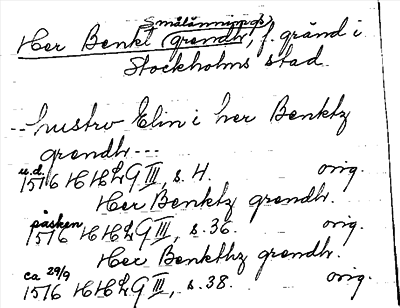 Smålänningps
Her Benkt (grendh), f. gränd i
Stockholms stad.
--- hustrv Elin i her Benktz
grendh ---
u.d.
1516 HHLG III, s. 4. orig.
Her Benktz grendh.
påsken
1516 HHLG III, s. 36. orig.
Her Benkthz grendh.
ca 29/9
1516 HHLG III, s. 38. orig.